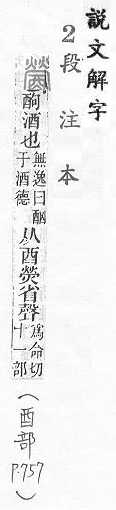 說文解字
2段注本
醟
酗酒也
無逸曰酗
于酒德
从酉熒省聲
爲命切
十一部
(酉部
P.757)